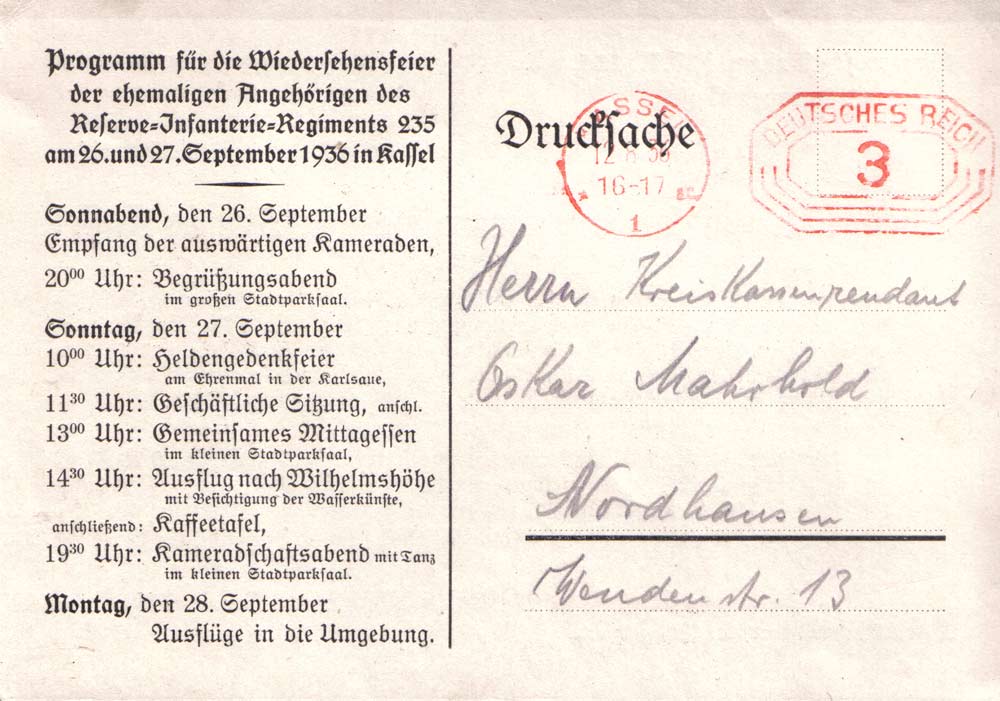 Programm für die Wiedersehensfeier
der ehemaligen Angehörigen des
Reserve=Infanterie=Regiments 235
am 26. und 27. September 1936 in Kassel
Sonnabend, den 26. September
Empfang der auswärtigen Kameraden,
20⁰⁰ Uhr: Begrüßungsabend
im großen Stadtparksaal.
Sonntag, den 27. September
10⁰⁰ Uhr: Heldengedenkfeier
am Ehrenmal in der Karlsaue,
11³⁰ Uhr: Geschäftliche Sitzung, anschl.
13⁰⁰ Uhr: Gemeinsames Mittagessen
im kleinen Stadtparksaal,
14³⁰ Uhr: Ausflug nach Wilhelmshöhe
mit Besichtigung der Wasserkünste,
anschließend: Kaffeetafel,
19³⁰ Uhr: Kameradschaftsabend mit Tanz
im kleinen Stadtparksaal.
Montag, den 28. September
Ausflüge in die Umgebung.
Drucksache
KASSEL
16-17
1
DEUTSCHES REICH
3
Herrn Kreiskassenrendant
Oskar Mahrhold
Nordhausen
Wendenstr. 13